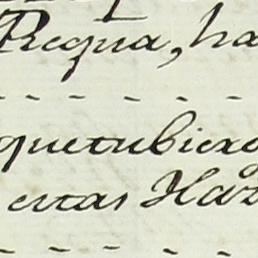 Recqua, ha
- - - - -
quetubiero
estas Haz
- - - - -